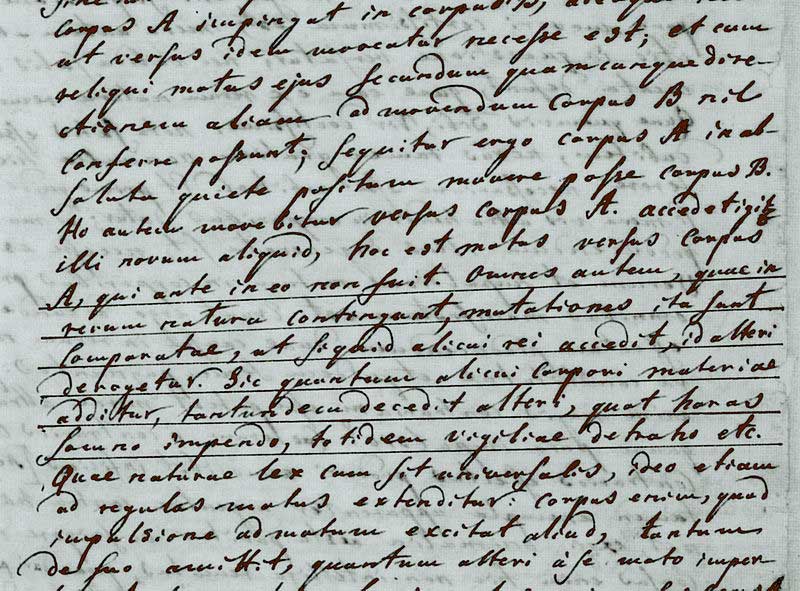 corpus A impingat in corpus B,
ut versus idem moveatur necesse est; et cum
reliqui motus ejus secundum quamcunque dire-
ctionem aliam ad movendum Corpus B nil
Conferre possunt; sequitur ergo corpus A in ab-
soluta quiete positum movere posse corpus B.
Ho autem movebitur versus corpus A. accedet igit
illi novum aliquid, hoc est motus versus Corpus
A, qui ante in eo non fuit. Omnes autem, quae in
rerum natura contingunt, mutationes ita sunt
Comparatae, ut siquid alicui rei accedit, id alteri
derogetur. Sic quantum alicui corpori materiae
additur, tantundem decedit alteri, quot horas
somno impendo, totidem vigiliae detraho etc.
Quae naturae lex cum sit universalis, ideo etiam
ad regulas motus extenditur: corpus enim, quod
impulsione ad motum excitat aliud, tantum
de suo amittit, quantum alteri à se moto imper